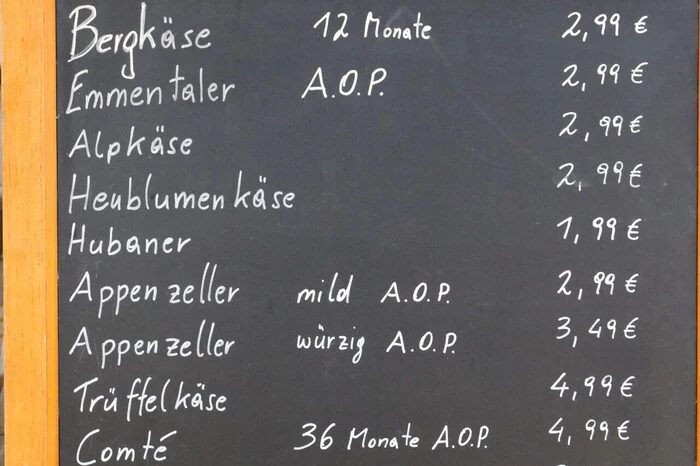 Bergkäse 12 Monate 2,99 €
Emmentaler A.O.P. 2,99 €
Alpkäse 2,99 €
Heublumenkäse 2,99 €
Hubaner 1,99 €
Appenzeller mild A.O.P. 2,99 €
Appenzeller würzig A.O.P. 3,49 €
Trüffelkäse 4,99 €
Comté 36 Monate A.O.P. 4,99 €